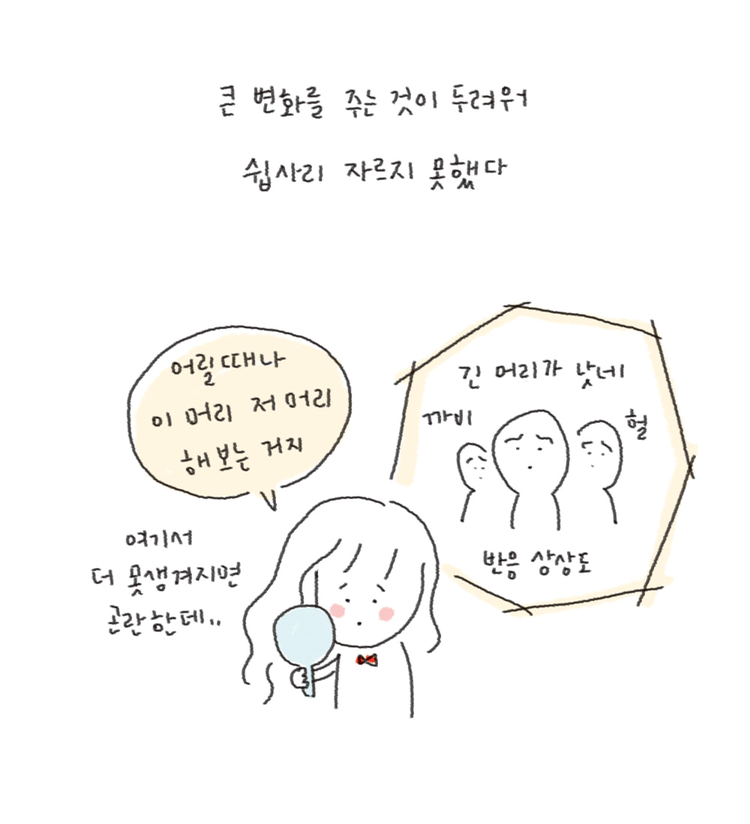 큰 변화를 주는 것이 두려워
쉽사리 자르지 못했다
어릴때나
이 머리 저 머리
해보는 거지
긴 머리가 낫네
까비
헐
반응 상상도
여기서
더 못생겨지면
곤란한데..